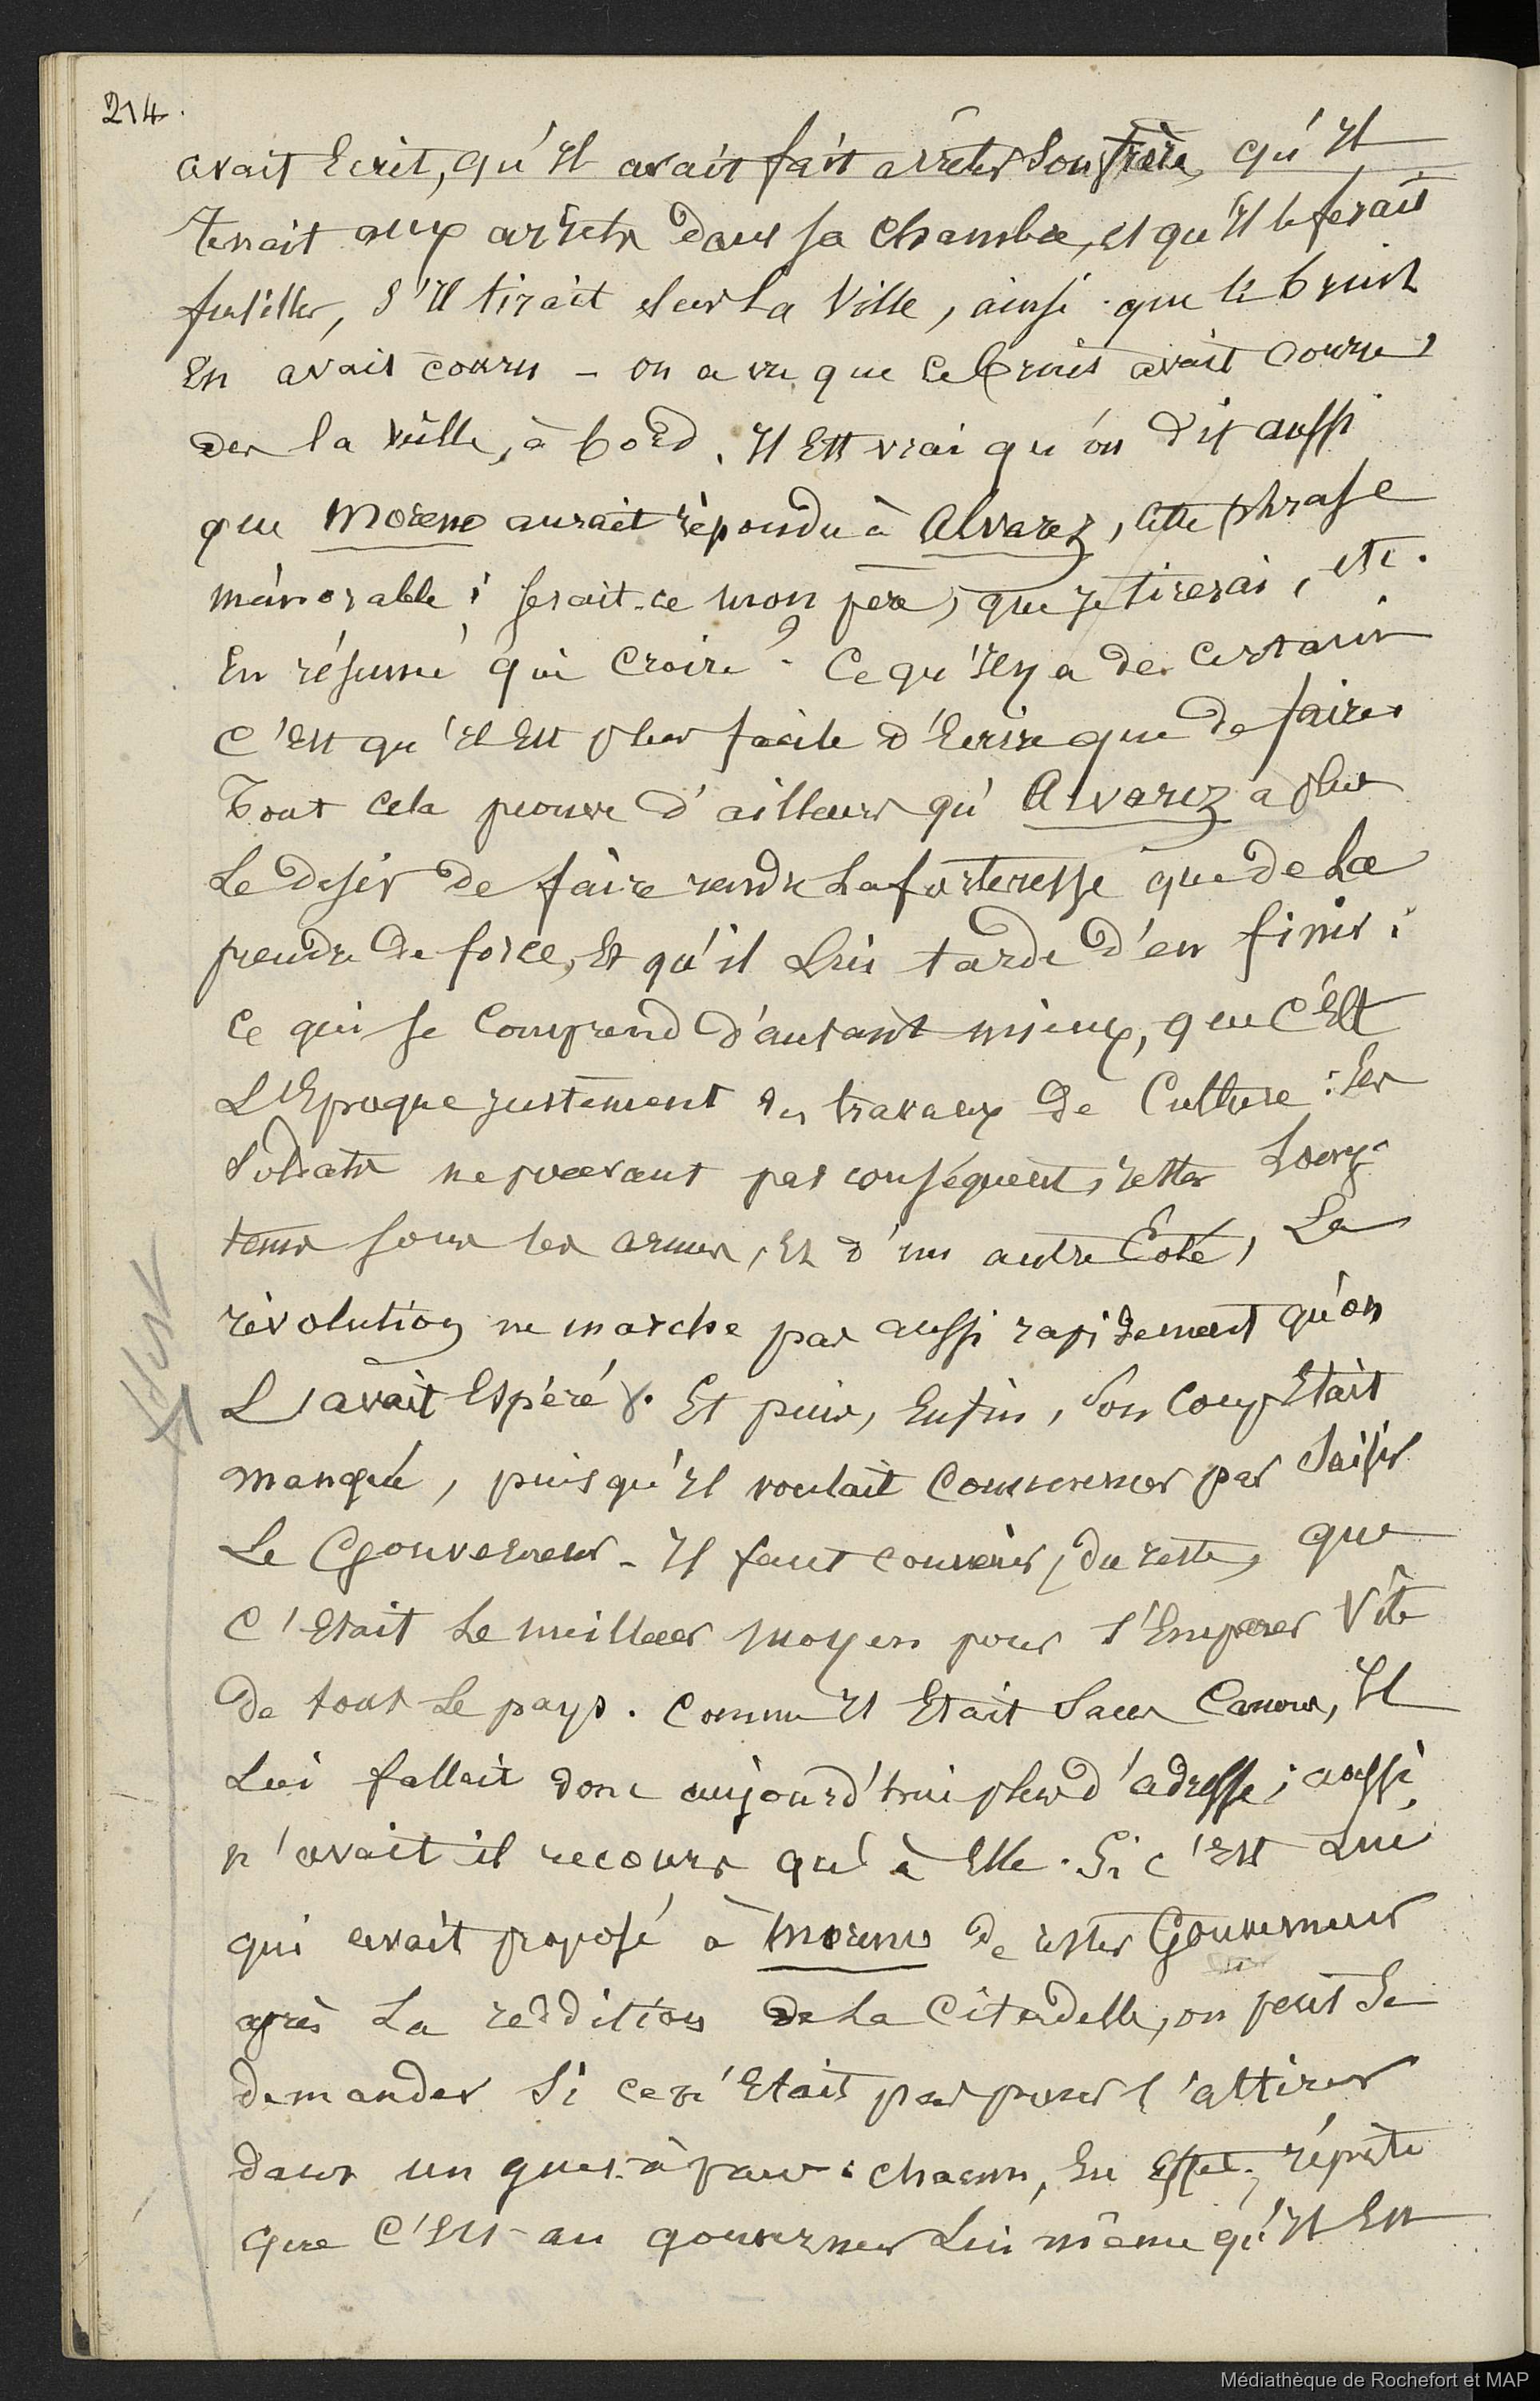 214.
avait Ecrit, qu'Il avait fait arrêter Son frère, qu'Il
tenait aux arrêts dans sa Chambre, et qu'Il le ferait
fusiller, S'Il tirait sur La Ville, ainsi que le bruit
En avait couru - on a vu que ce bruit avait couru,
de la ville, à bord. Il Est vrai qu'on dit aussi
que Moreno aurait répondu à Alvarez, cette phrase
mémorable ; serait-ce mon père, que je tirerai, etc.
En résumé qui Croire ? Ce qu'Il y a de certain
C'Est qu'il Est plus facile d'Ecrire que de faire.
Tout cela prouve d'ailleurs qu'Alvarez a plus
Le desir de faire rendre La forteresse que de La
prendre de force, Et qu'il Lui tarde d'en finir ;
Ce qui se Comprend d'autant mieux, que C'Est
L'Epoque justement des travaux de Culture : Les
Soldats ne pouvant par conséquent, rester Long-
tems sous les armes, Et d'un autre Coté, La
révolution ne marche pas aussi rapidement qu'on
L'avait Espéré. Et puis, Enfin, Son Coup Etait
manqué, puisqu'Il voulait Commencer par Saisir
Le Gouverneur - Il faut convenir, du reste, que
C'Etait Le meilleur moyen pour s'Emparer Vite
de tout Le pays. Comme Il Etait Sans Canons, Il
Lui fallait donc aujourd'hui plus d'adresse ; aussi,
n'avait-il recours qu'à Elle. Si C'Est Lui
qui avait proposé à Moreno de rester Gouverneur
après La reddition de La Citadelle, on peut Se
demander Si ce n'Etait pas pour l'attirer
dans un guet-à-pans. Chacun, En Effet, répète
que C'Est au gouverneur Lui même qu'Il En
Médiathèque de Rochefort et MAP